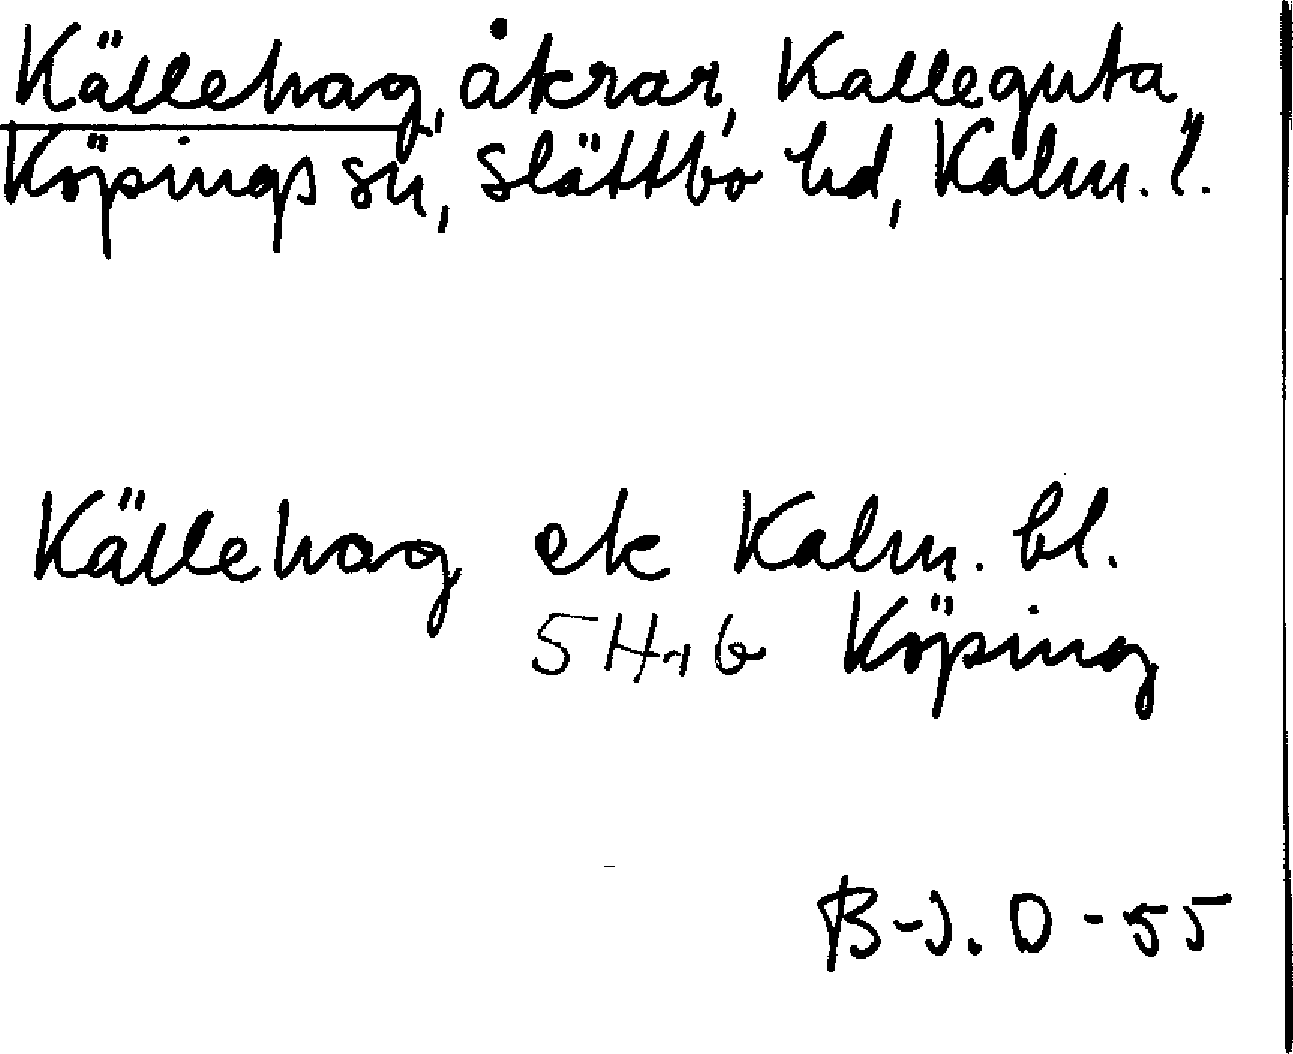 Källehag, åkrar, Kalleguta,
Köpings sn, Slättbo hd, Kalm. l.
Källehag ek Kalm. bl.
Köping
B-J. O - 55